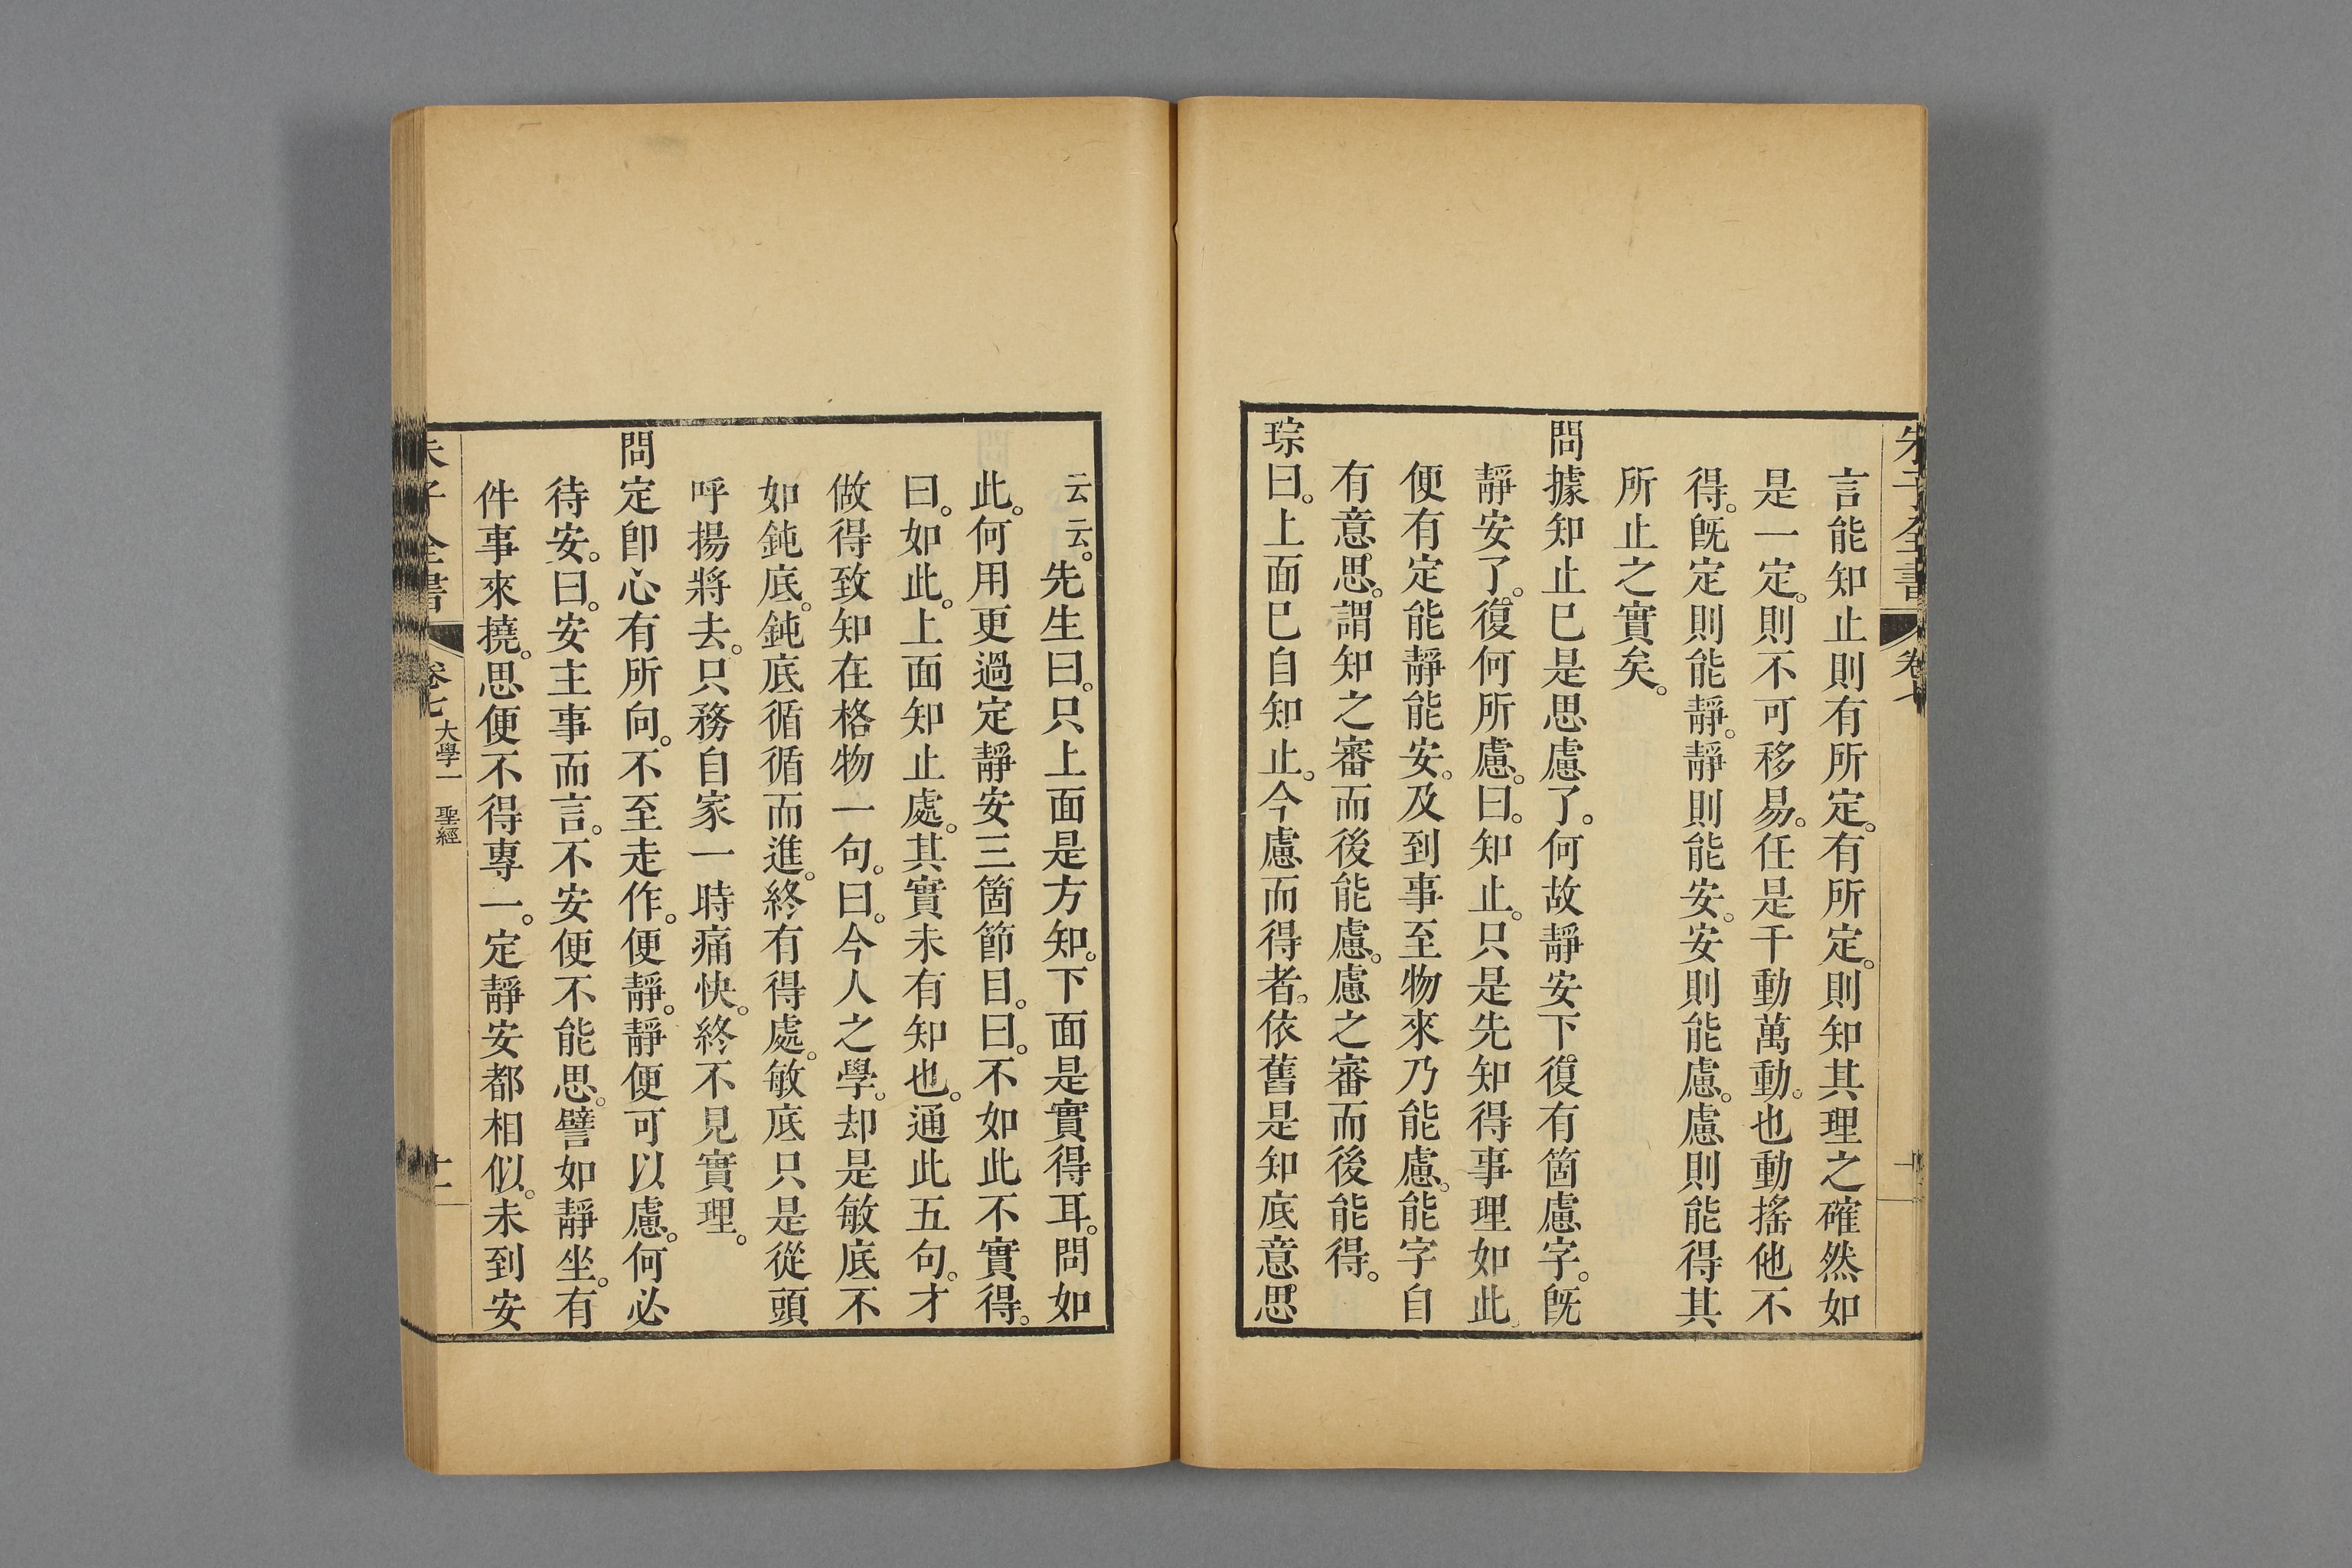 朱子全書 卷七
言能知止則有所定。有所定。則知其理之確然如
是一定。則不可移易。任是千動萬動。也動搖他不
得。旣定則能靜。靜則能安。安則能慮。慮則能得其
所止之實矣。
問據知止巳是思慮了。何故靜安下復有箇慮字。旣
靜安了。復何所慮。曰。知止。只是先知得事理如此。
便有定能靜能安。及到事至物來乃能慮。能字自
有意思。謂知之審而後能慮。慮之審而後能得。
琮曰。上面巳自知止。今慮而得者。依舊是知底意思
云云。先生曰。只上面是方知。下面是實得耳。問如
此。何用更過定靜安三箇節目。曰。不如此不實得。
曰。如此。上面知止處。其實未有知也。通此五句。才
做得致知在格物一句。曰。今人之學。却是敏底不
如鈍底。鈍底循循而進。終有得處。敏底只是從頭
呼揚將去。只務自家一時痛快。終不見實理。
問定卽心有所向。不至走作。便靜。靜便可以慮。何必
待安。曰。安主事而言。不安便不能思。譬如靜坐。有
件事來撓。思便不得專一。定靜安都相似。未到安
朱子全書 卷七 大學一 聖經 十一